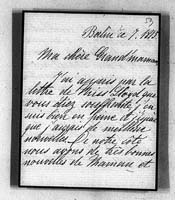 59
Berlin ce 7. 1888
Ma chère Grandmaman
J'ai appris par la
lettre de Miss Lloyd que
vous êtes souffrante, j'en
suis bien en peine et
que j'aurais de meilleures
nouvelles. De notre côté
nous avons de très bonnes
nouvelles de Maman et